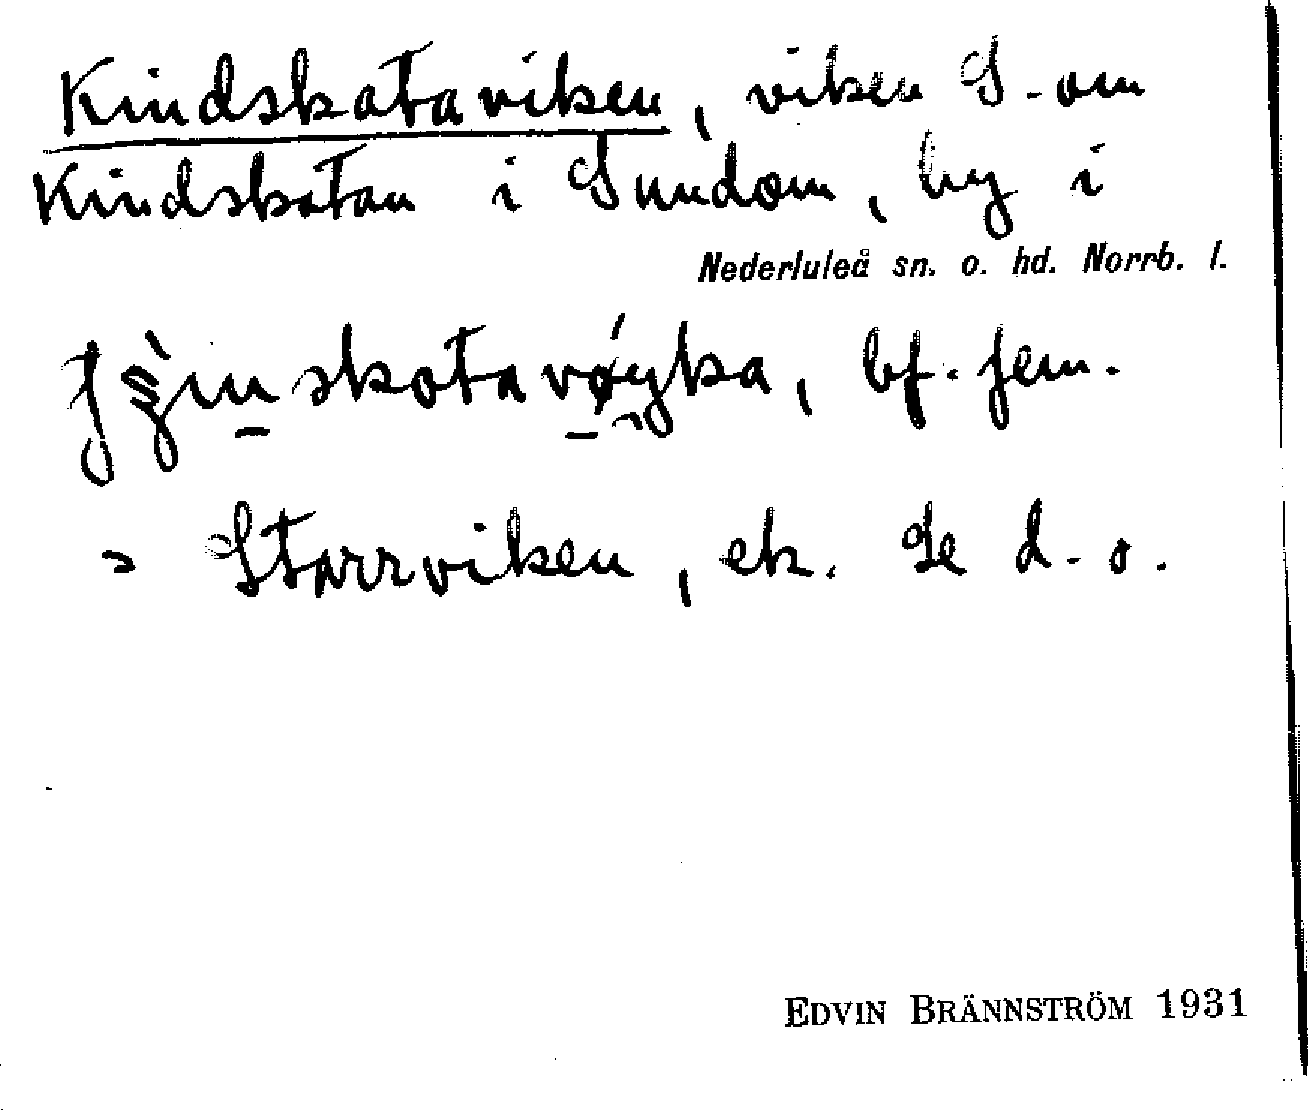 Kindskataviken, viken S. om
Kindskatan i Sundom, by i
Nederluleå sn. o. hd. Norrb. l.
bf. fem.
= Starrviken, ek. Se d. o.
EDVIN BRÄNNSTRÖM 1931